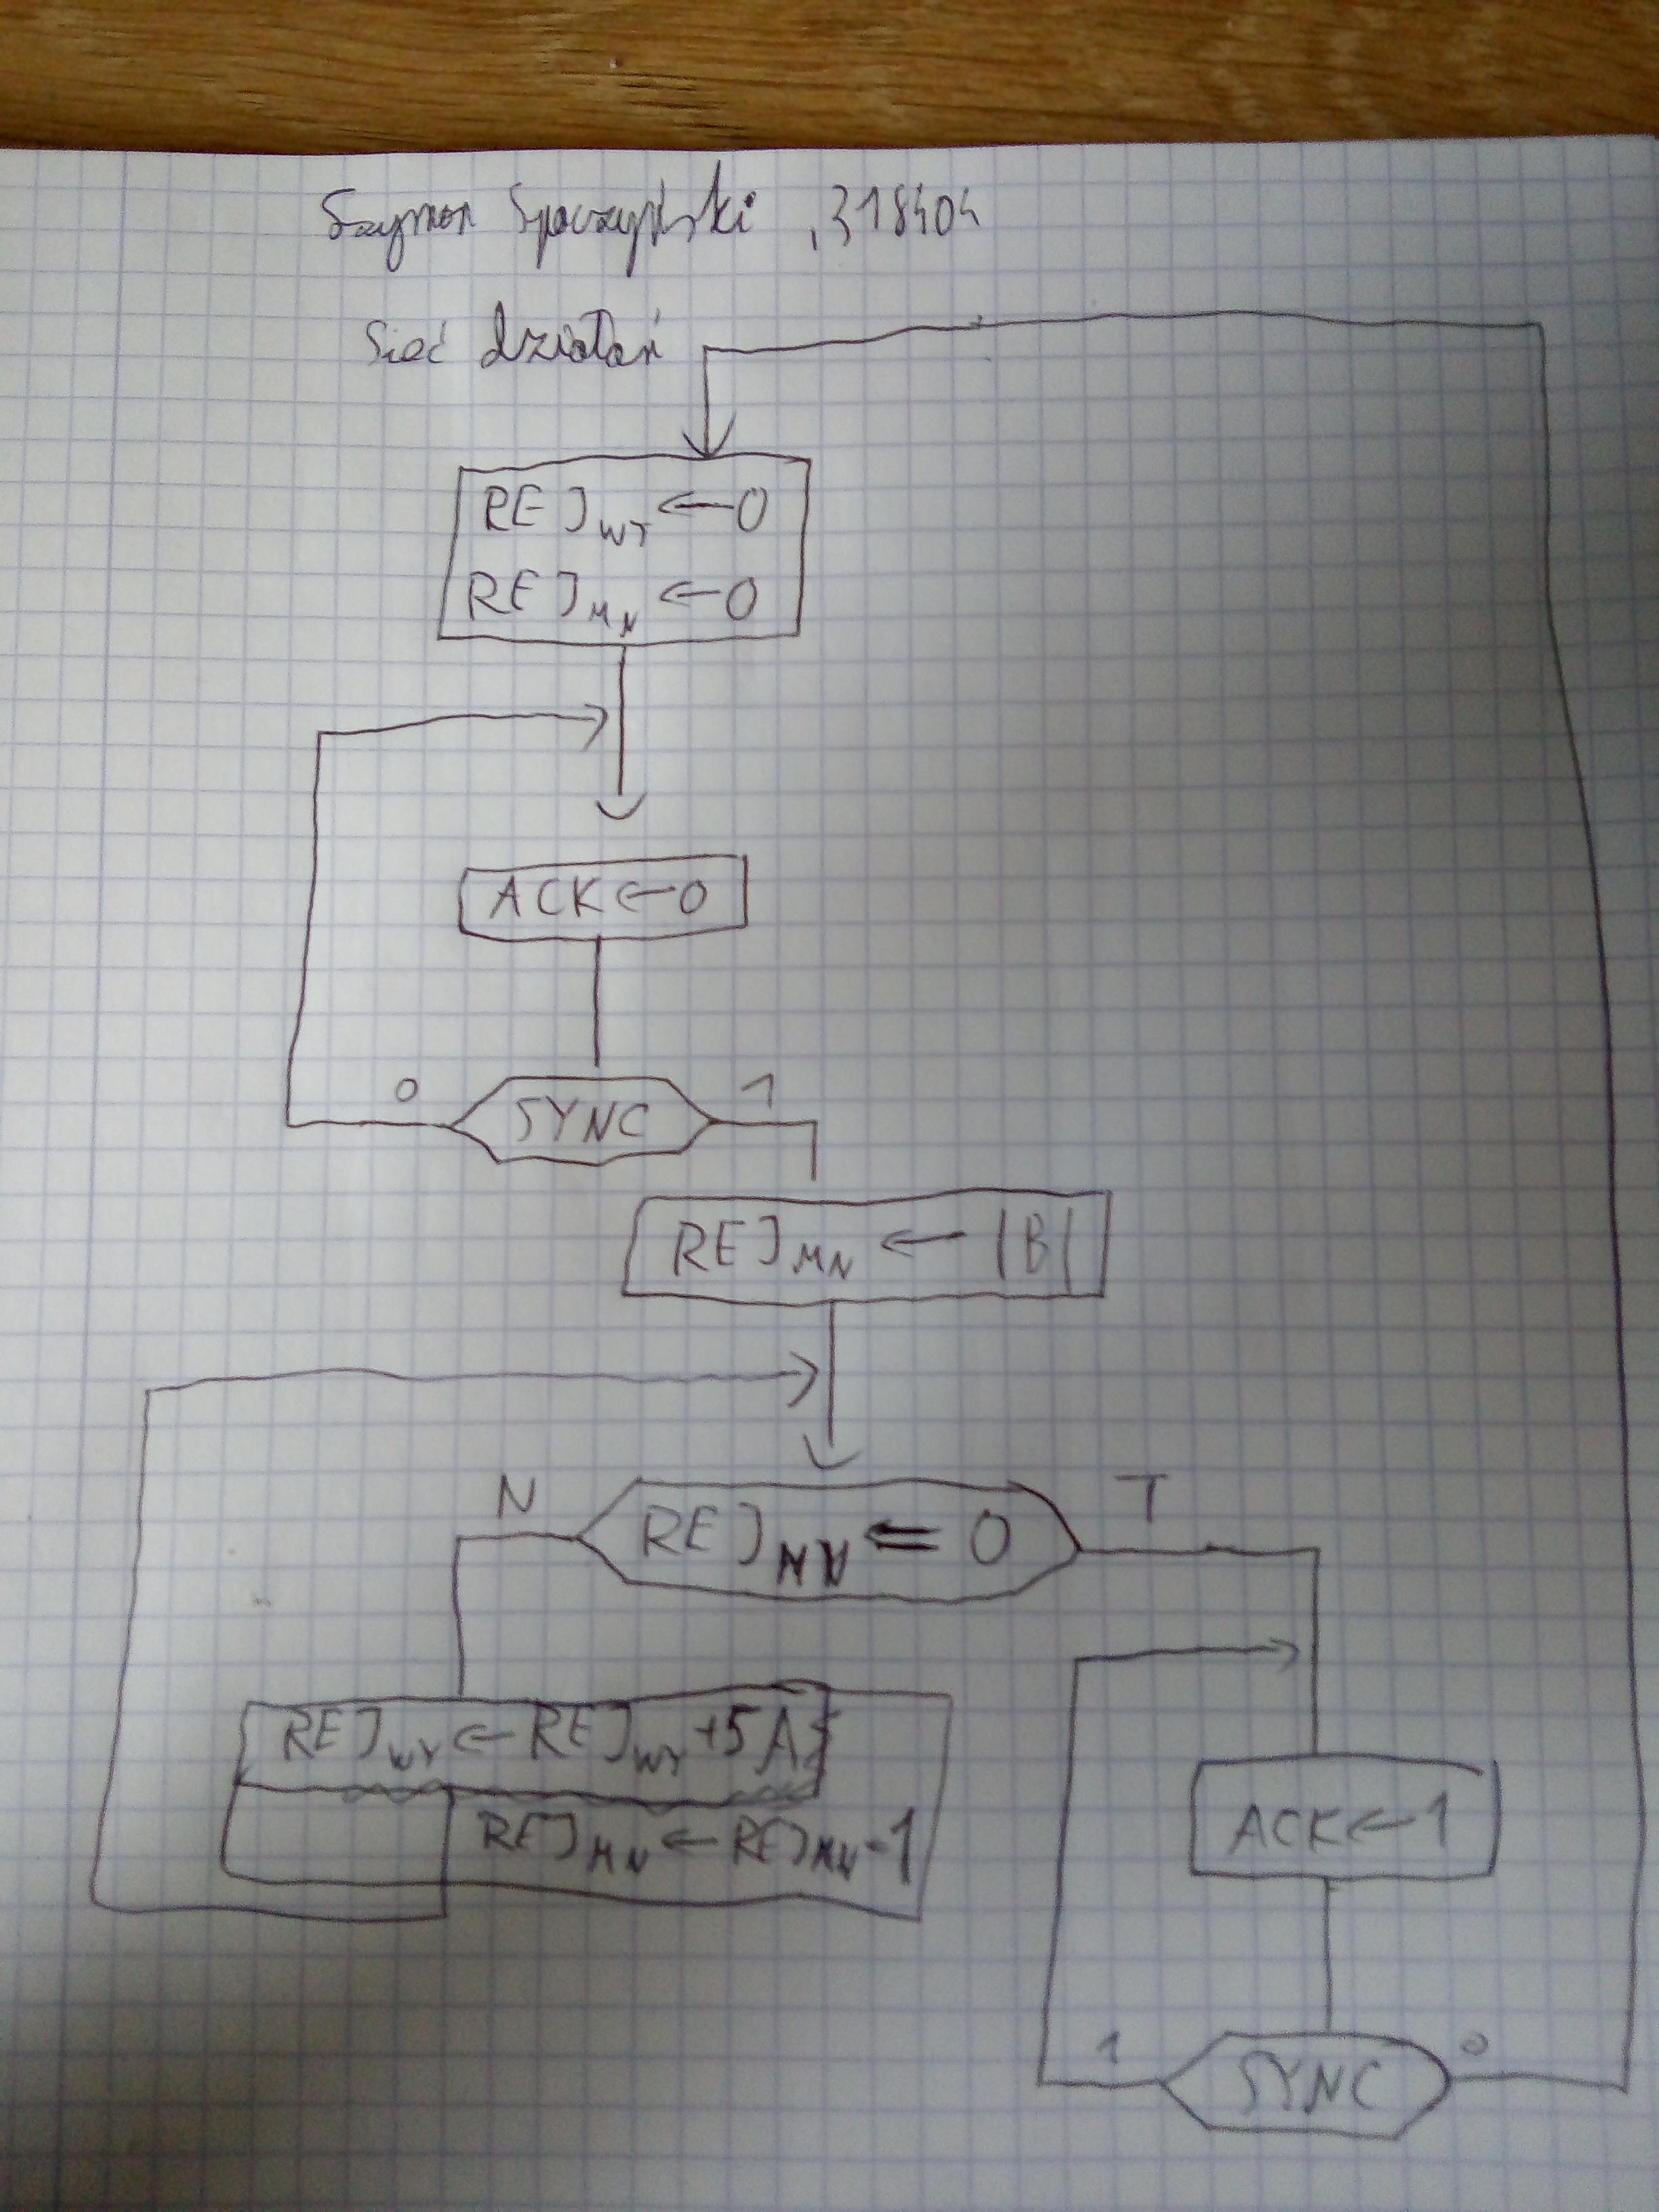 Szymon Spaczyński, 318404
Sieć działań
REJWY ← 0
REJMN ← 0
ACK ← 0
0 SYNC 1
REJMN ← |B|
N REJMN = 0 T
REJWY ← REJWY + 5A
REJMN ← REJMN - 1
ACK ← 1
1 SYNC 0